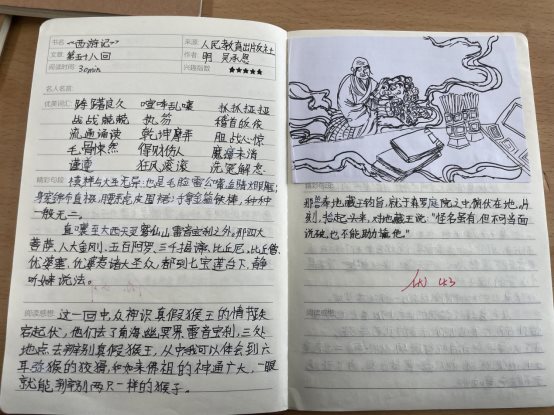 书名: 《西游记》
来源: 人民教育出版社
文章: 第五十八回
作者: 明 吴承恩
阅读时间: 30min
兴趣指数 ★★★★★
名人名言:
优美词汇: 踌躇良久 喧哗乱嚷 抓抓挜挜
战战兢兢 执笏 稽首皈依
流通诵读 乾坤磨弄 胆战心惊
毛骨悚然 得财伤人 魔瘴未消
谨遵 狂风滚滚 洗冤解忿
精彩句段: 模样与大圣无异: 也是毛脸雷公嘴
一般无二。
直嚷至大西天灵鹫仙山雷音宝刹之外。那四大
菩萨、八大金刚、五百阿罗、三千揭谛、比丘尼、比丘僧、
优婆塞、优婆夷诸大圣众, 都到七宝莲台下, 静
听如来说法。
阅读感想: 这一回中众神识真假猴王的情节跌
宕起伏, 他们去了南海、幽冥界、雷音宝刹, 三处
地点去辨别真假猴王, 从中我可以体会到六
耳猕猴的狡猾, 和如来佛祖的神通广大, 一眼
就能辨别两只一样的猴子。
精彩句段:
那兽奉地藏钧旨, 就于森罗庭院之中, 俯伏在地。片
刻, 抬起头来, 对地藏王说: "怪名虽有, 但不可当面
说破, 也不能助擒他。"
阅读感想: